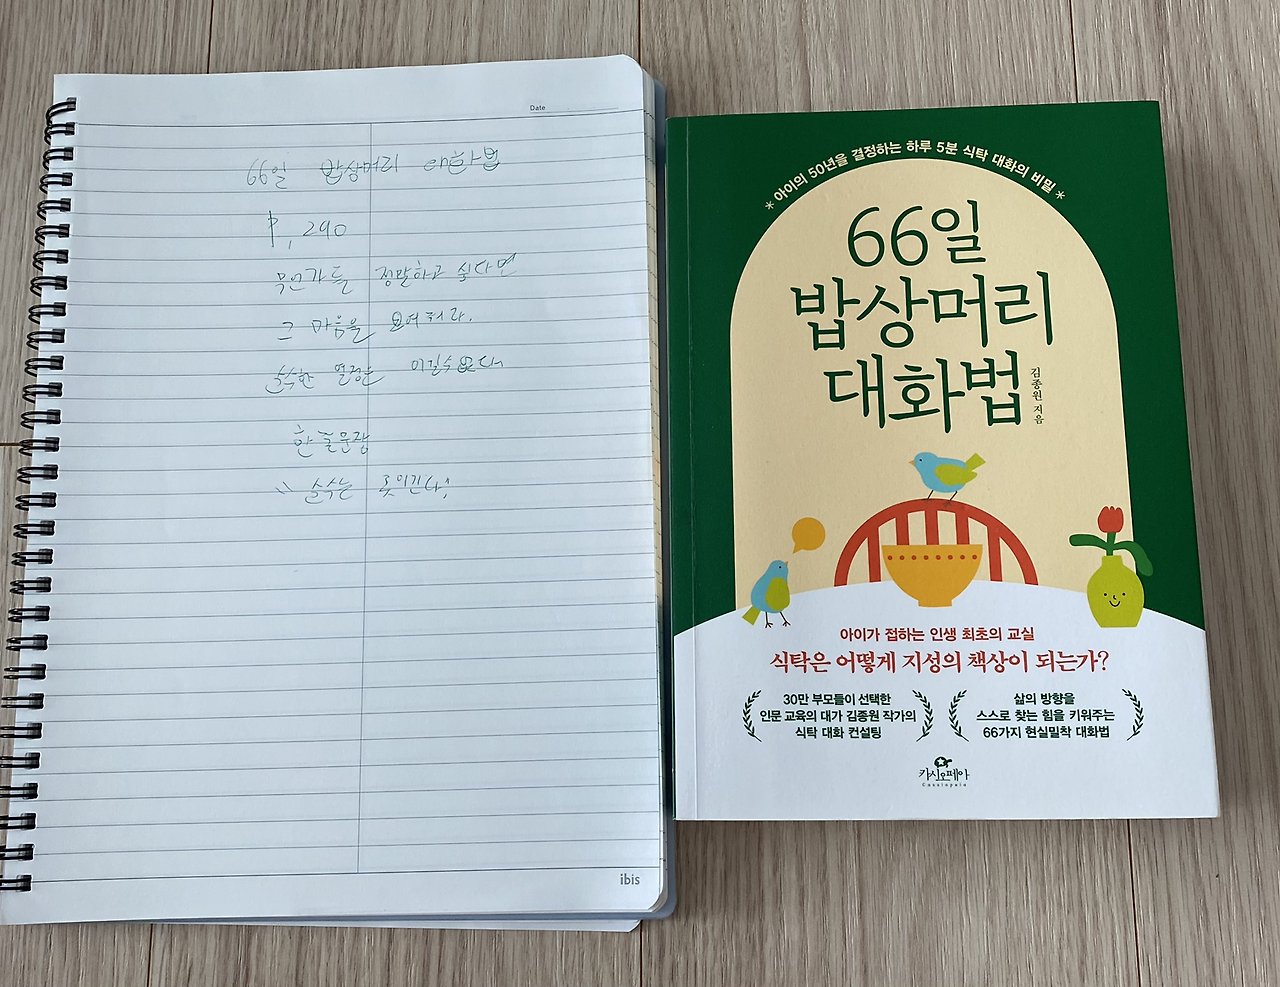 Date
66일 밥상머리 대화법
P, 290
무언가를 정말하고 싶다면
그 마음을 보여줘라.
순수한 열정은 이길수없다
한줄문장
순수는 못이긴다!
ibis
* 아이의 50년을 결정하는 하루 5분 식탁 대화의 비밀 *
66일
밥상머리
대화법
김종원 지음
아이가 접하는 인생 최초의 교실
식탁은 어떻게 지성의 책상이 되는가?
30만 부모들이 선택한
인문 교육의 대가 김종원 작가의
식탁 대화 컨설팅
삶의 방향을
스스로 찾는 힘을 키워주는
66가지 현실밀착 대화법
카시오페아
Cassiopeia